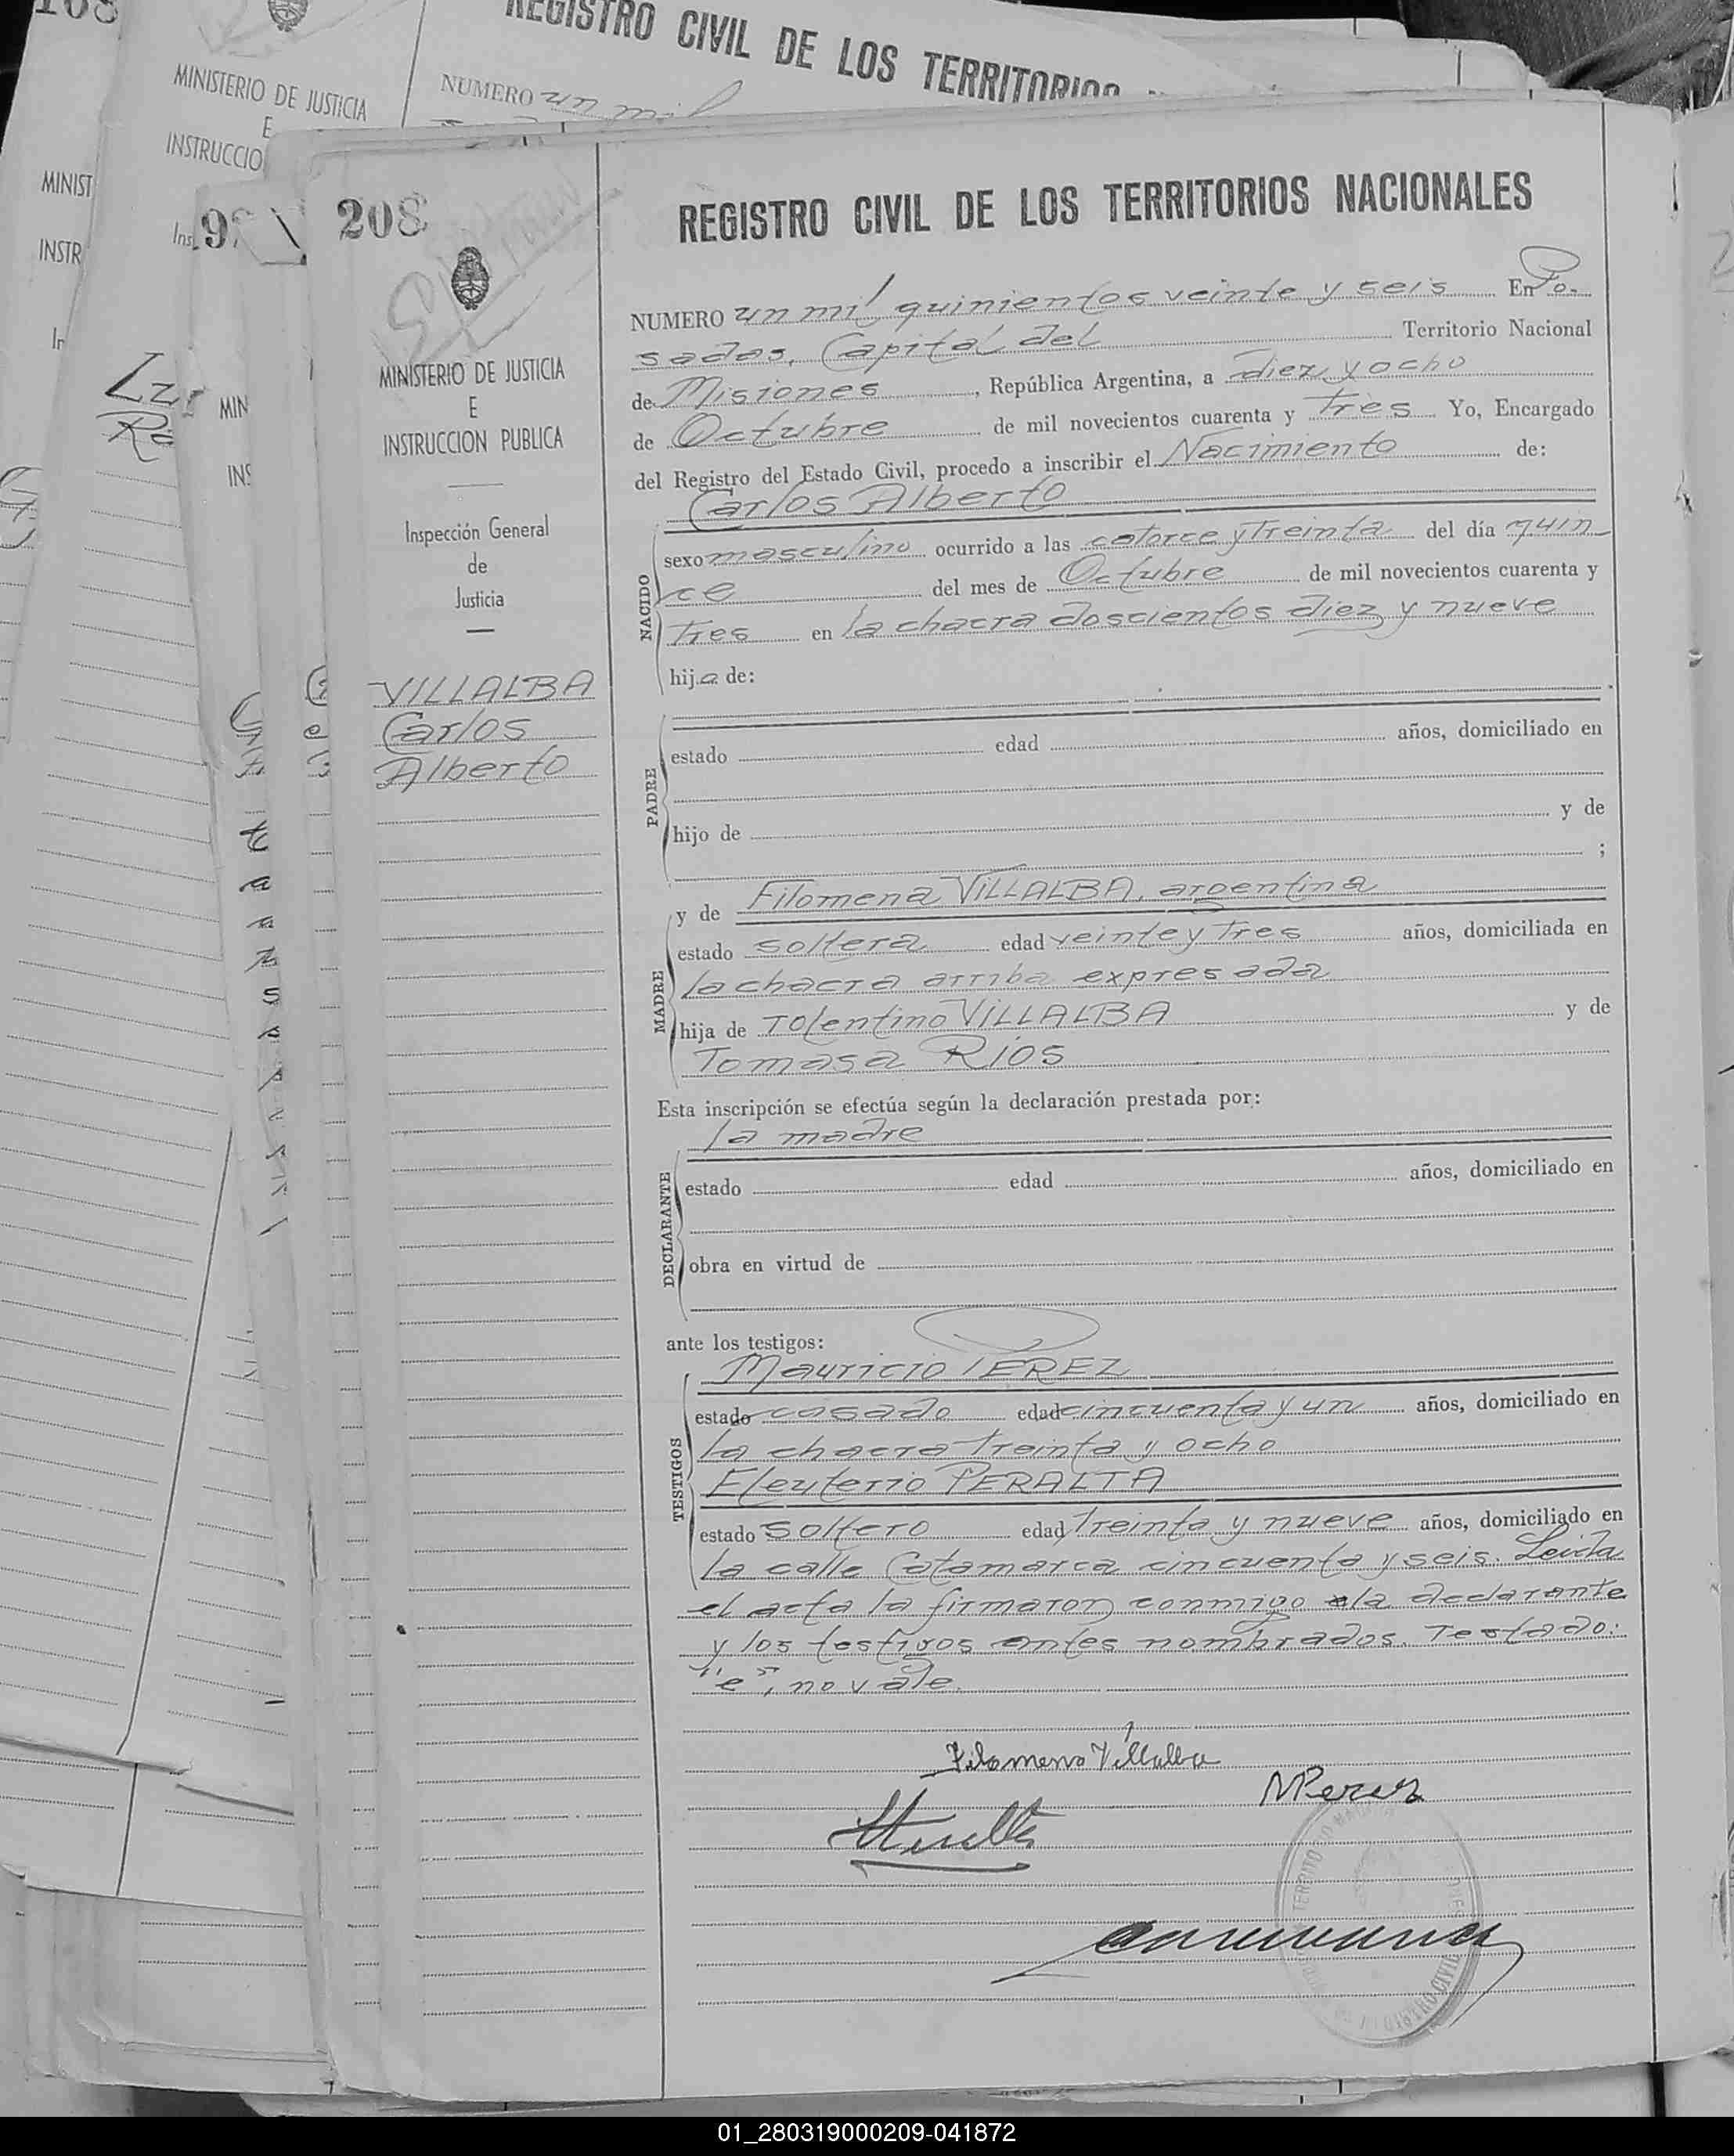 REGISTRO CIVIL DE LOS TERRITORIOS
MINISTERIO DE JUSTICIA
E
INSTRUCCIO
NUMERO un mil
MINIST
INSTR
MIN
INS
208
MINISTERIO DE JUSTICIA
E
INSTRUCCION PUBLICA
Inspección General
de
Justicia
VILLALBA
Carlos
Alberto
REGISTRO CIVIL DE LOS TERRITORIOS NACIONALES
NUMERO un mil quinientos veinte y seis En Po-
sadas, Capital del Territorio Nacional
de Misiones, República Argentina, a diez y ocho
de Octubre de mil novecientos cuarenta y Tres Yo, Encargado
del Registro del Estado Civil, procedo a inscribir el Nacimiento de:
Carlos Alberto
NACIDO
sexo masculino ocurrido a las catorce y Treinta del día quin-
ce del mes de Octubre de mil novecientos cuarenta y
Tres en la chacra doscientos diez y nueve
hija de:
PADRE
estado edad años, domiciliado en
hijo de y de
;
y de Filomena VILLALBA, argentina
MADRE
estado soltera edad veinte y Tres años, domiciliada en
la chacra arriba expresada
hija de Tolentino VILLALBA y de
Tomasa RIOS
Esta inscripción se efectúa según la declaración prestada por:
la madre
DECLARANTE
estado edad años, domiciliado en
obra en virtud de
ante los testigos:
Mauricio PEREZ
TESTIGOS
estado casado edad cincuenta y un años, domiciliado en
la chacra Treinta y ocho
Eleuterio PERALTA
estado soltero edad Treinta y nueve años, domiciliado en
la calle Catamarca cincuenta y seis. Leida
el acta la firmaron conmigo la declarante
y los testigos antes nombrados. Testado:
"e", no vale.
Filomena Villalba
MPerez
REGISTRO CIVIL
01_280319000209-041872